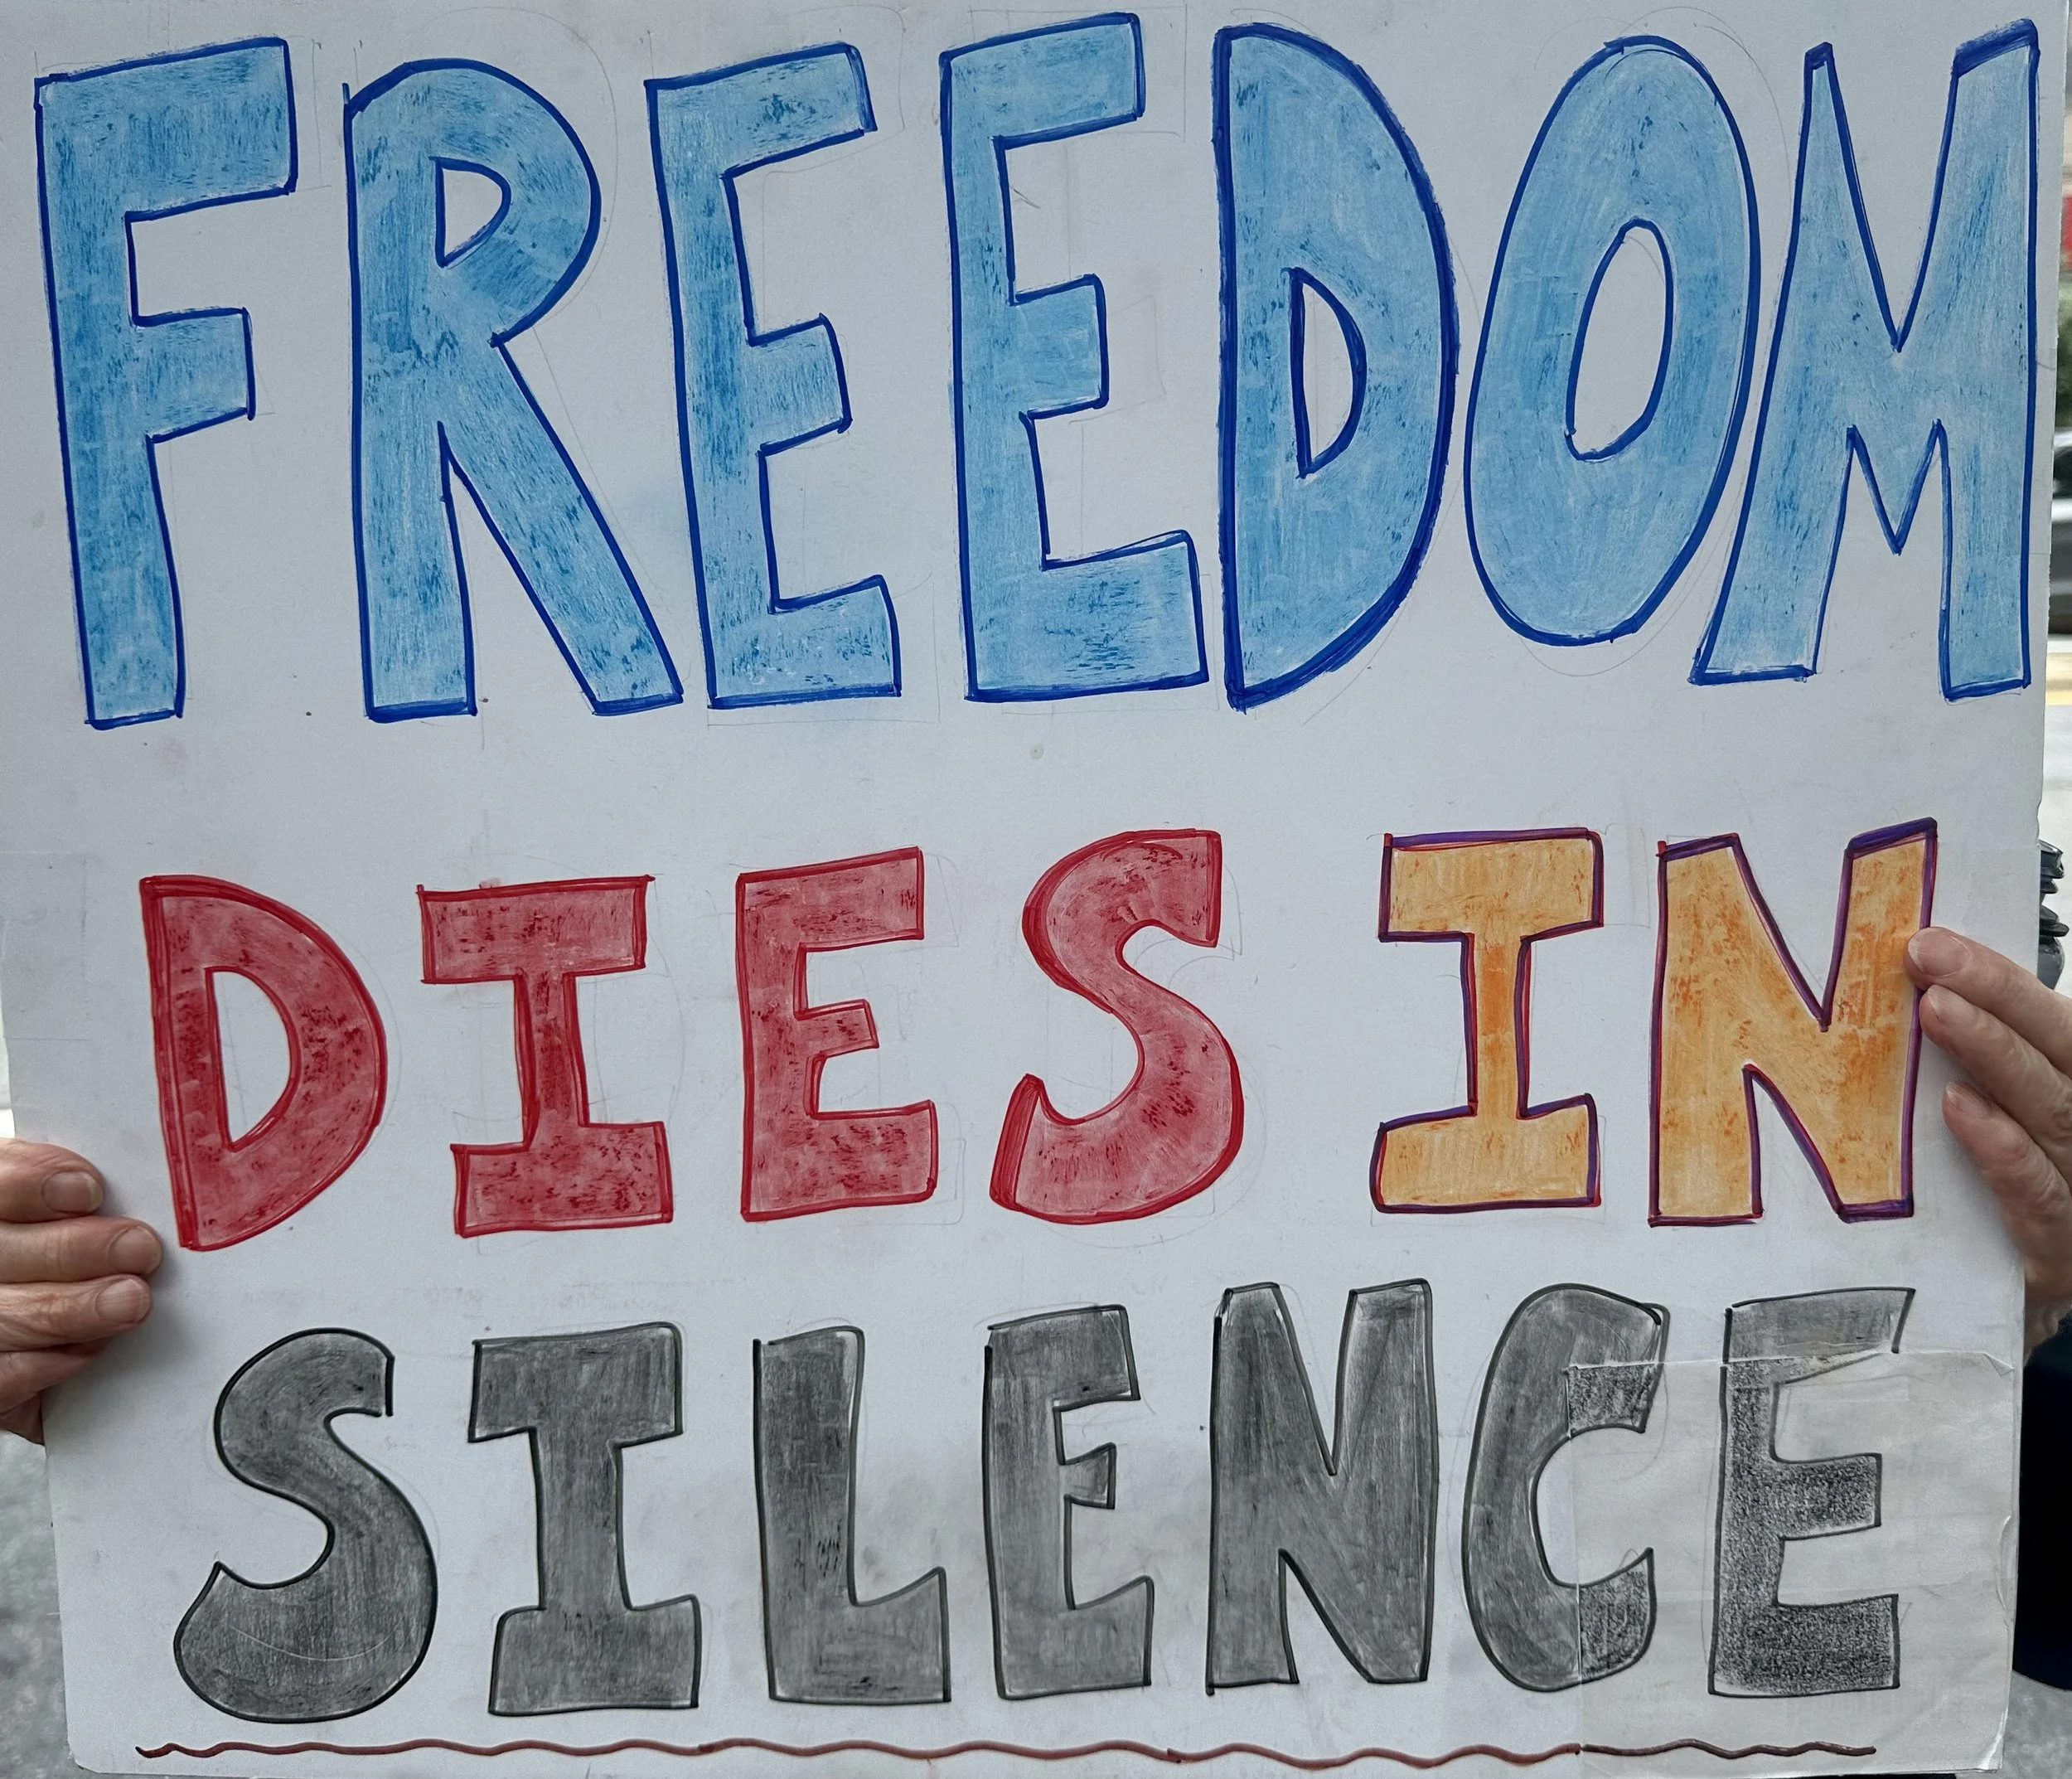 FREEDOM
DIES IN
SILENCE